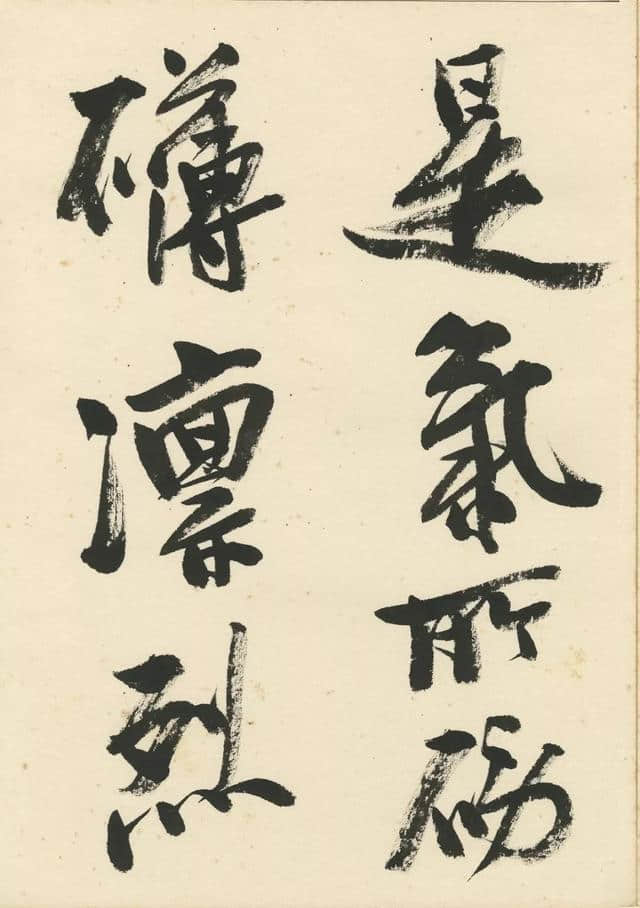 是氣所磅
礴凜烈